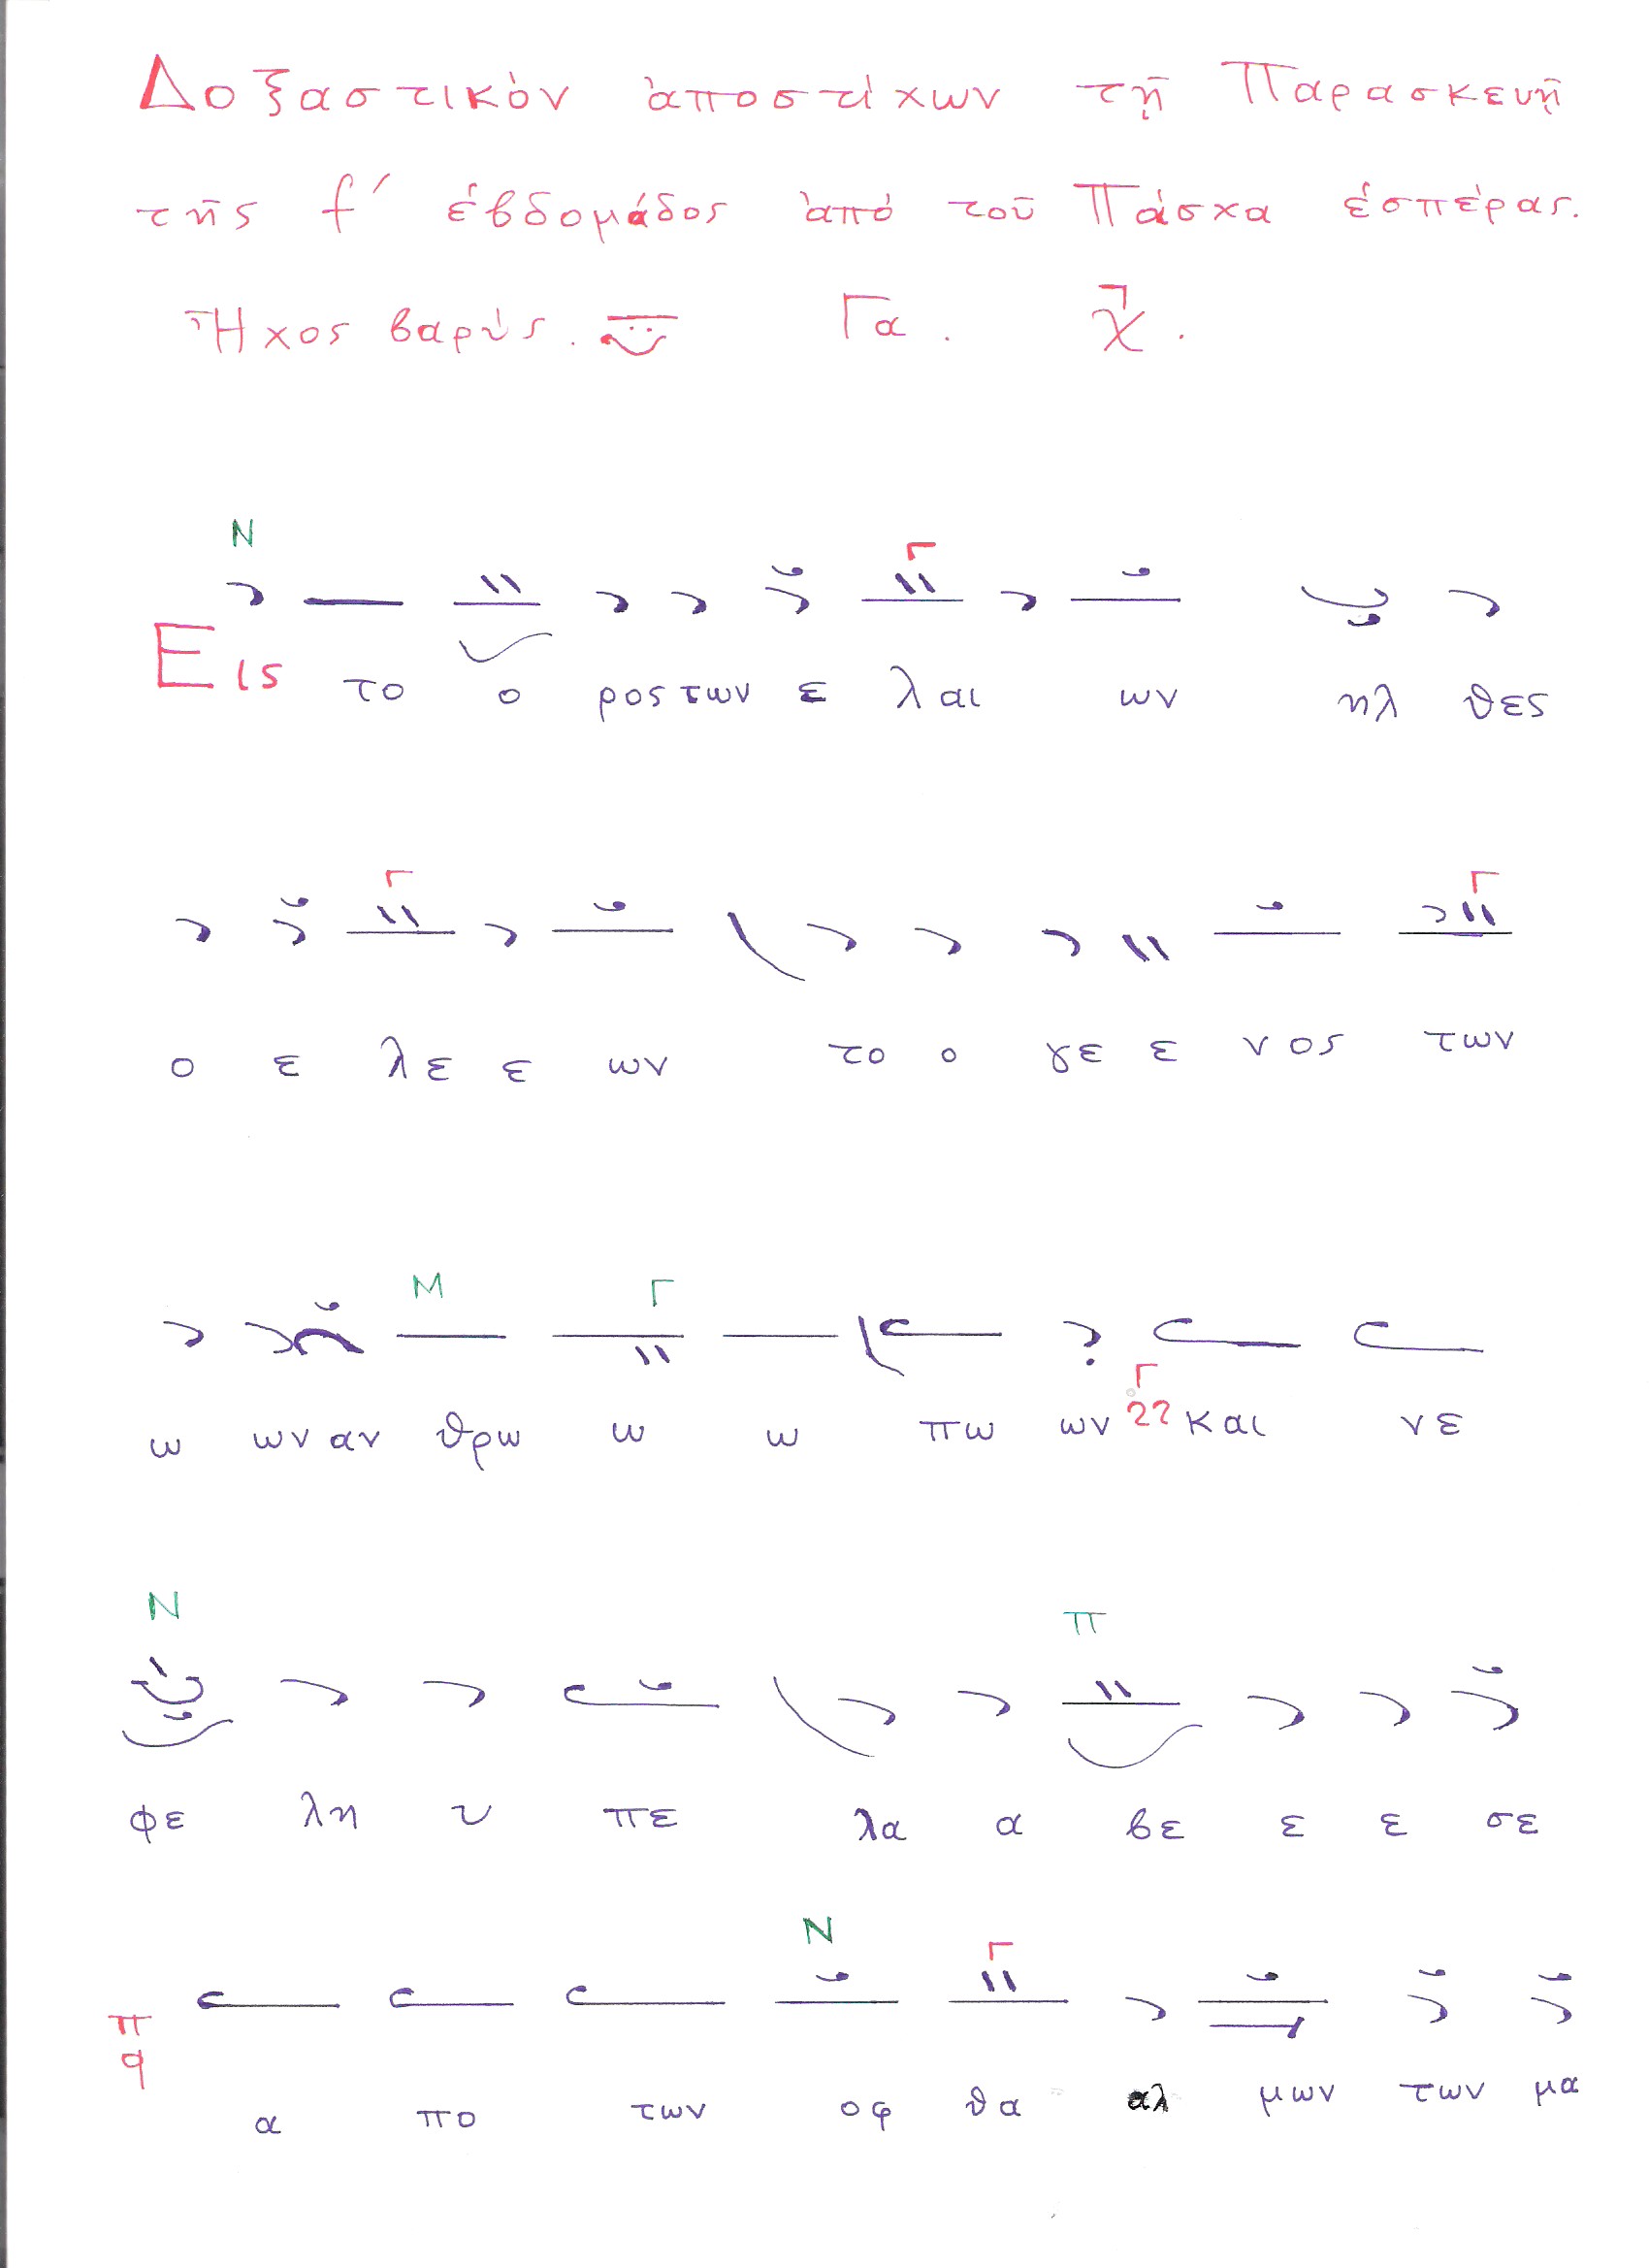 Δοξαστικὸν ἀποστίχων τῇ Παρασκευῇ
τῆς ϛ´ ἑβδομάδος ἀπὸ τοῦ Πάσχα ἑσπέρας.
Ἦχος βαρύς. Γα.
Ν Γ
Εις το ο ρος των ε λαι ων ηλ θες
Γ Γ
ο ε λε ε ων το ο γε ε νος των
Μ Γ
ω ων αν θρω ω ω πω ων και νε
Γ
Ν Π
φε λη υ πε λα α βε ε ε σε
Ν Γ
π
q
α πο των οφ θα αλ μων των μα